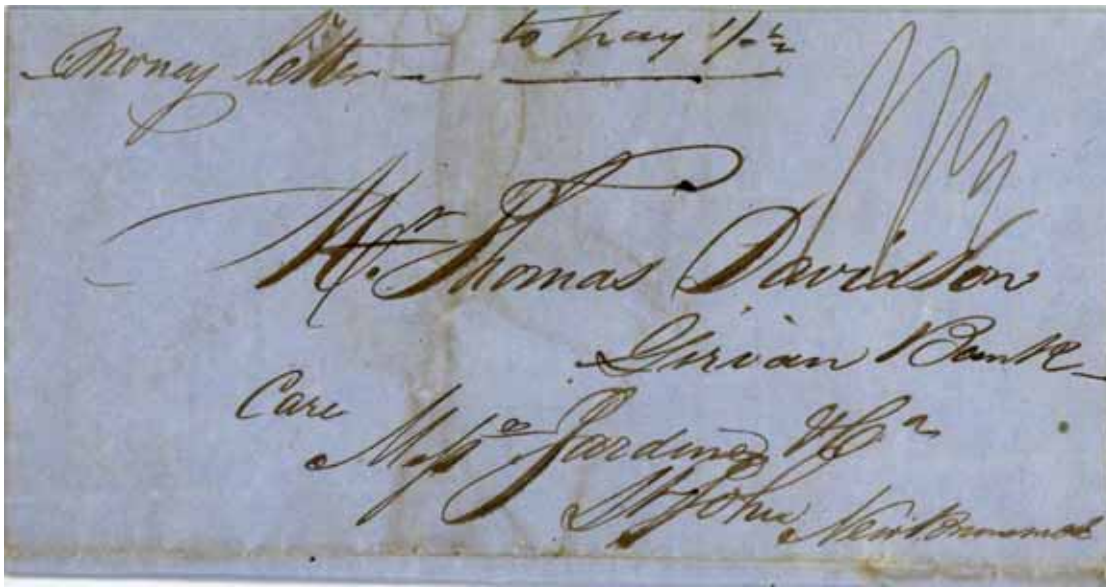 Money letter to pay 1/-½
Mr. Thomas Davidson
Girvan Bank
Care
Messrs Jardine & Co
St John New Brunswick